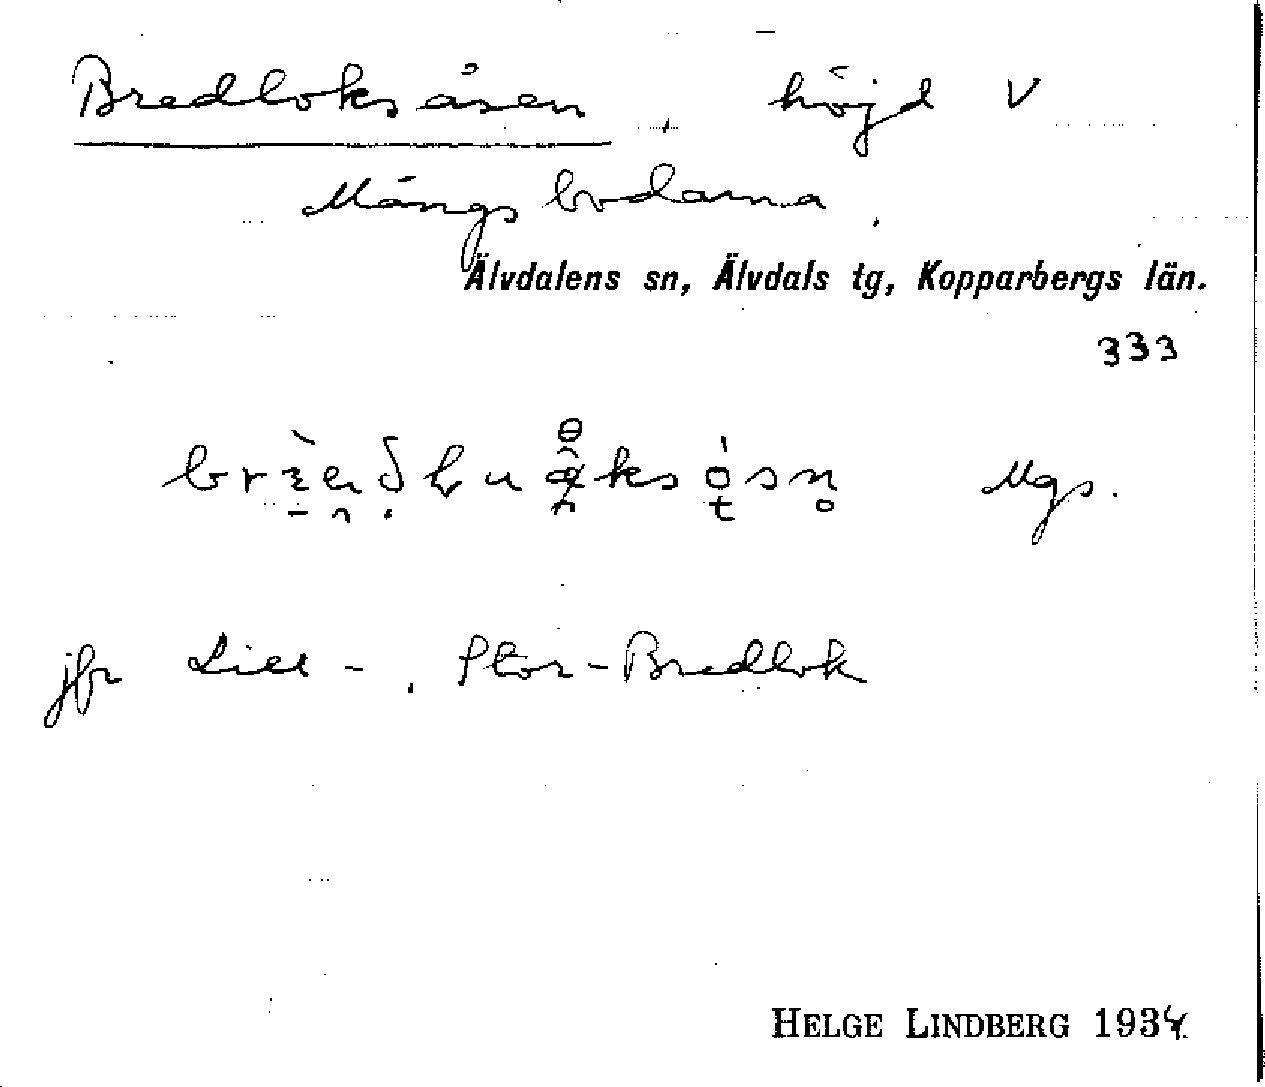 Bredloksåsen, höjd V
Mångsbodarna.
Älvdalens sn, Älvdals tg, Kopparbergs län.
333
Mgs.
jfr Lill-, Stor-Bredlok
HELGE LINDBERG 1934.